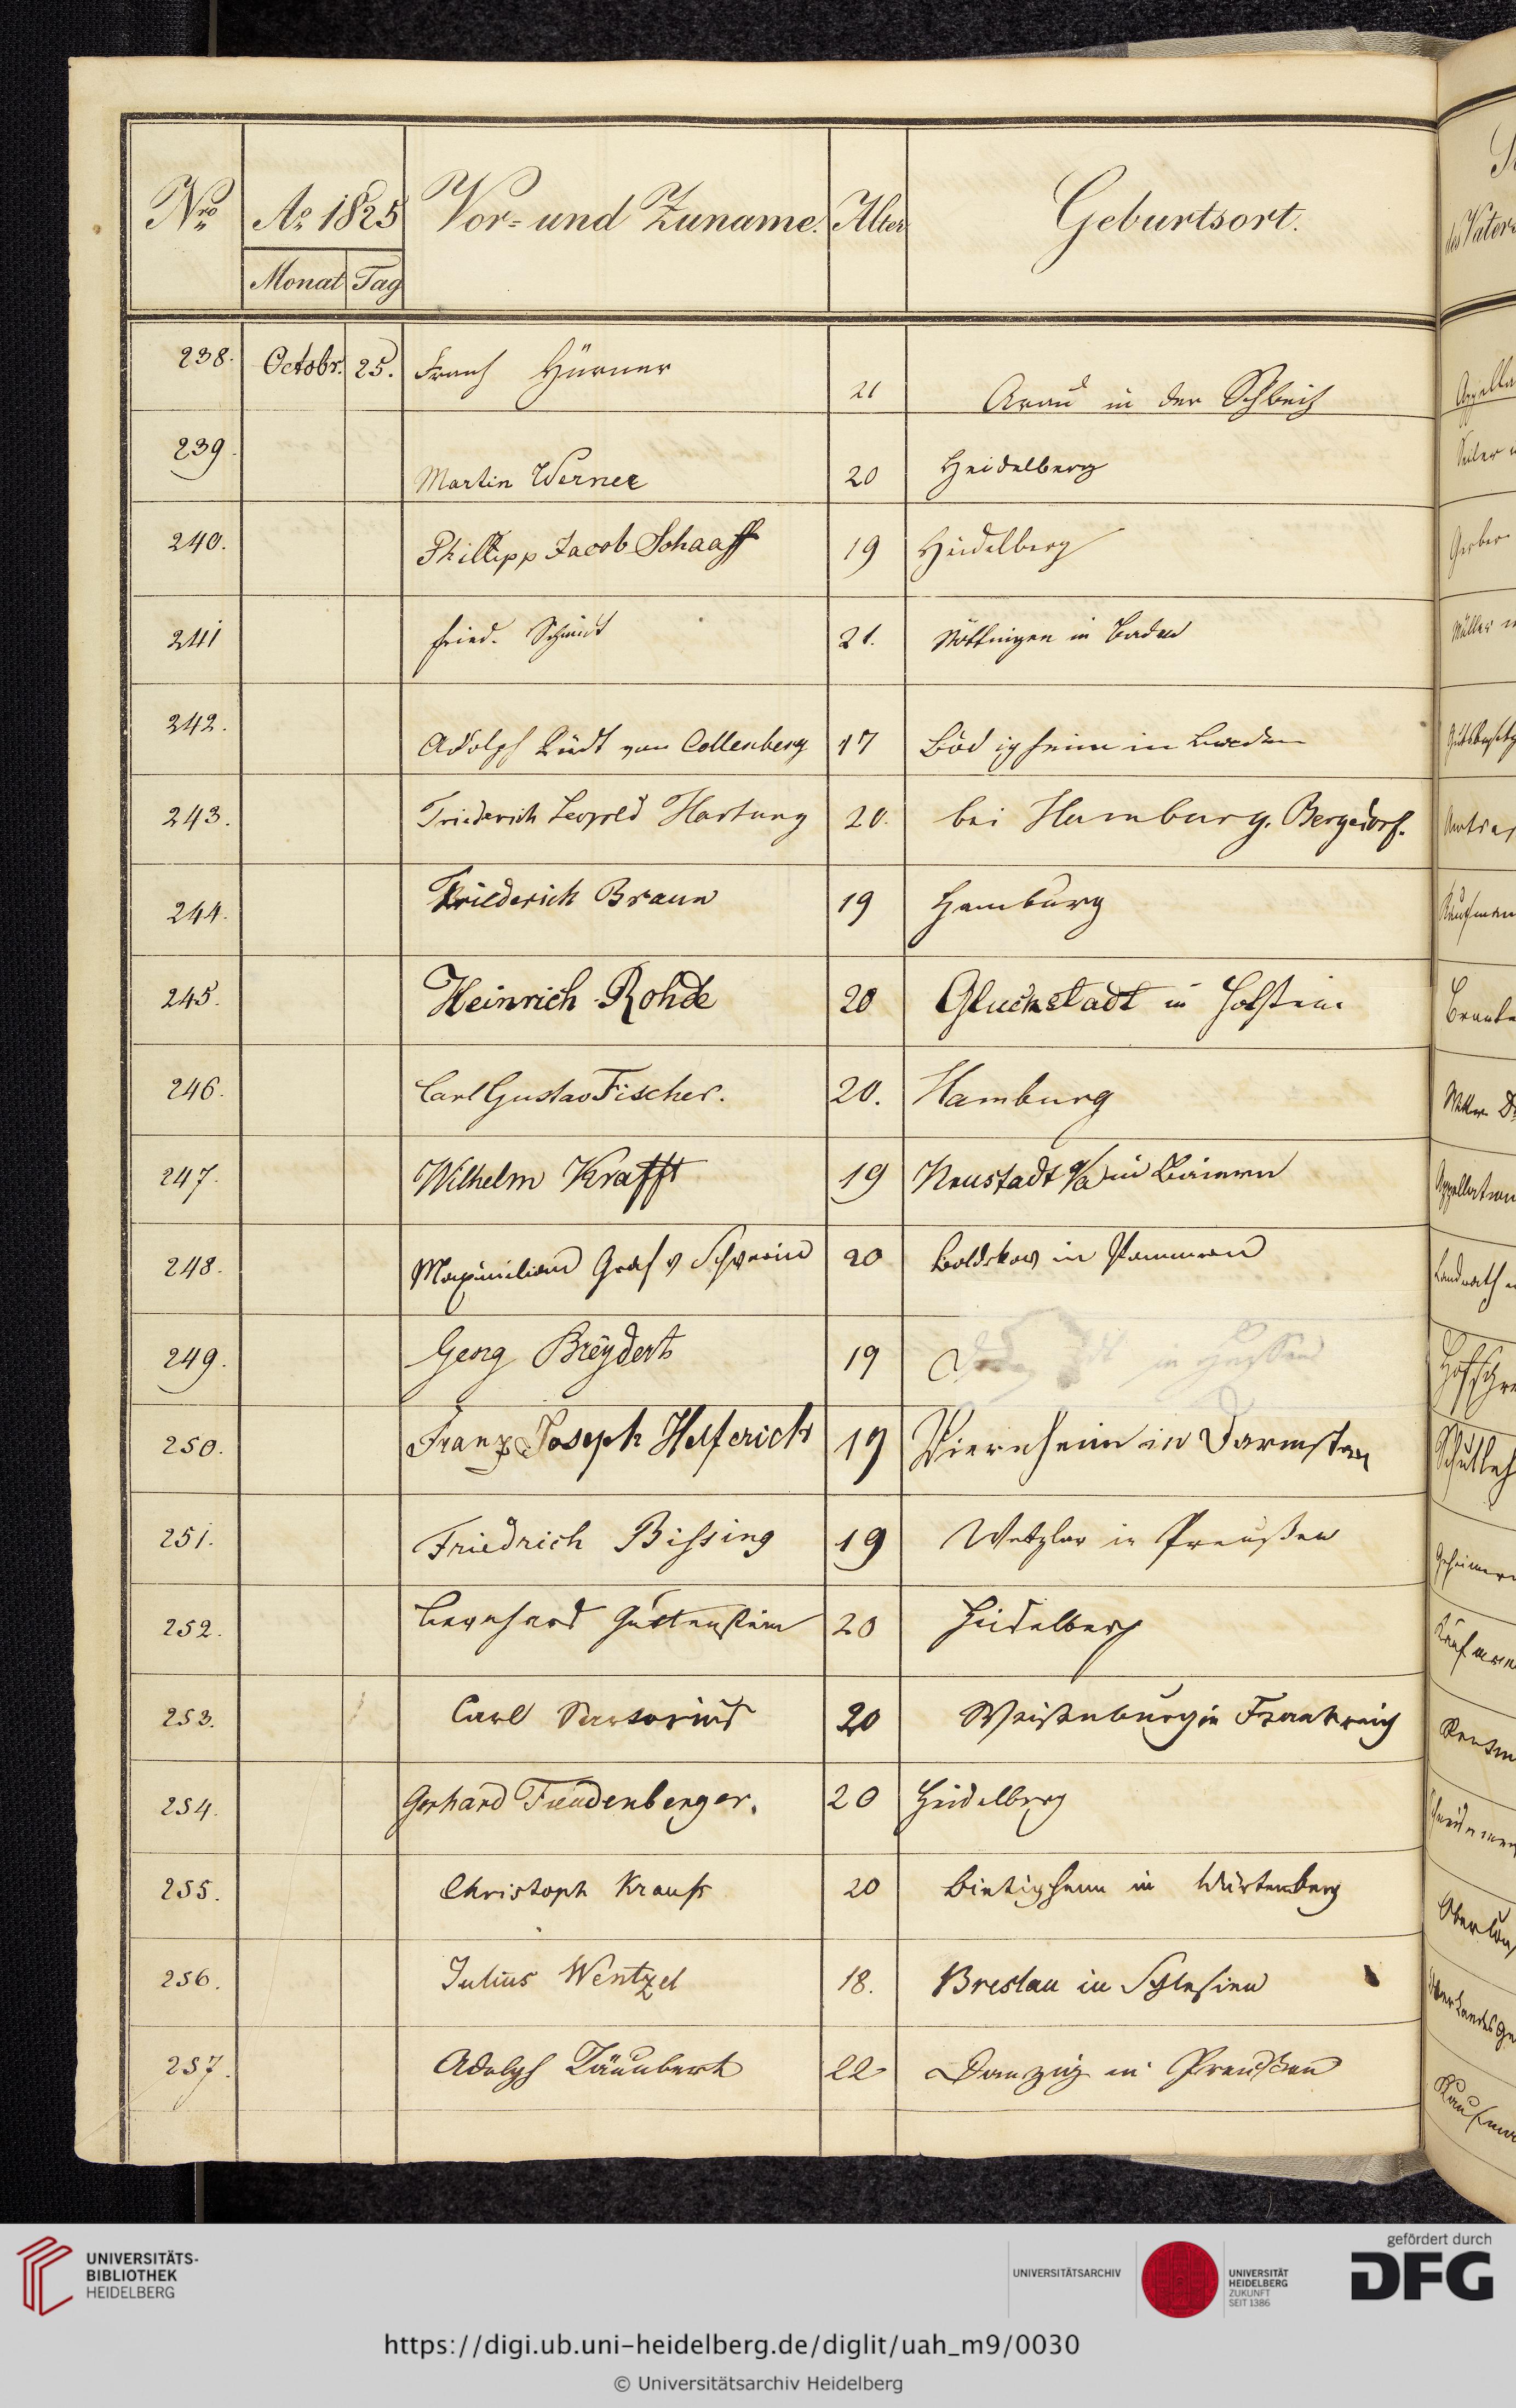 Nro A° 1825 Vor- und Zuname. Alter Geburtsort.
des Vaters
Monat Tag
238. Octobr. 25. Franz Hürner 21 Arau in der Schweiz
239. Martin Werner 20 Heidelberg
240. Phillipp Jacob Schaaff 19 Heidelberg Gerber
241 Fried. Schmidt 21. Nöttingen in Baden Müller
242. Adolph Rüdt von Collenberg 17 Bödigheim in Baden
243. Friederich Leopold Hartung 20. bei Hamburg, Bergedorf.
244. Friederich Braun 19 Hamburg Kaufmann
245. Heinrich Rohde 20 Gluckstadt in Holstein
246. Carl Gustav Fischer. 20. Hamburg
247. Wilhelm Krafft 19 Neustadt a/a in Baiern Appellation
248. Maximilian Graf v Schwerin 20 Boldekow in Pommern Landrath
249. Georg Breydert 19 in Hessen
250. Franz Joseph Helferich 19 Viernheim in Darmstad Schulleh
251. Friedrich Bissing 19 Wetzlar in Preußen Geheimer
252. Bernhard Guttenstein 20 Heidelberg Kaufmann
253. Carl Sartorius 20 Weissenburg in Frankreich
254. Gerhard Freudenberger. 20 Heidelberg
255. Christoph Krauß 20 Bietigheim in Würtemberg
256. Julius Wentzel 18. Breslau in Schlesien Oberlandesge
257. Adolph Täubert 22 Danzig in Preußen Kaufman
UNIVERSITÄTS-
BIBLIOTHEK
HEIDELBERG
UNIVERSITÄTSARCHIV
UNIVERSITÄT
HEIDELBERG
ZUKUNFT
SEIT 1386
gefördert durch
DFG
https://digi.ub.uni-heidelberg.de/diglit/uah_m9/0030
© Universitätsarchiv Heidelberg